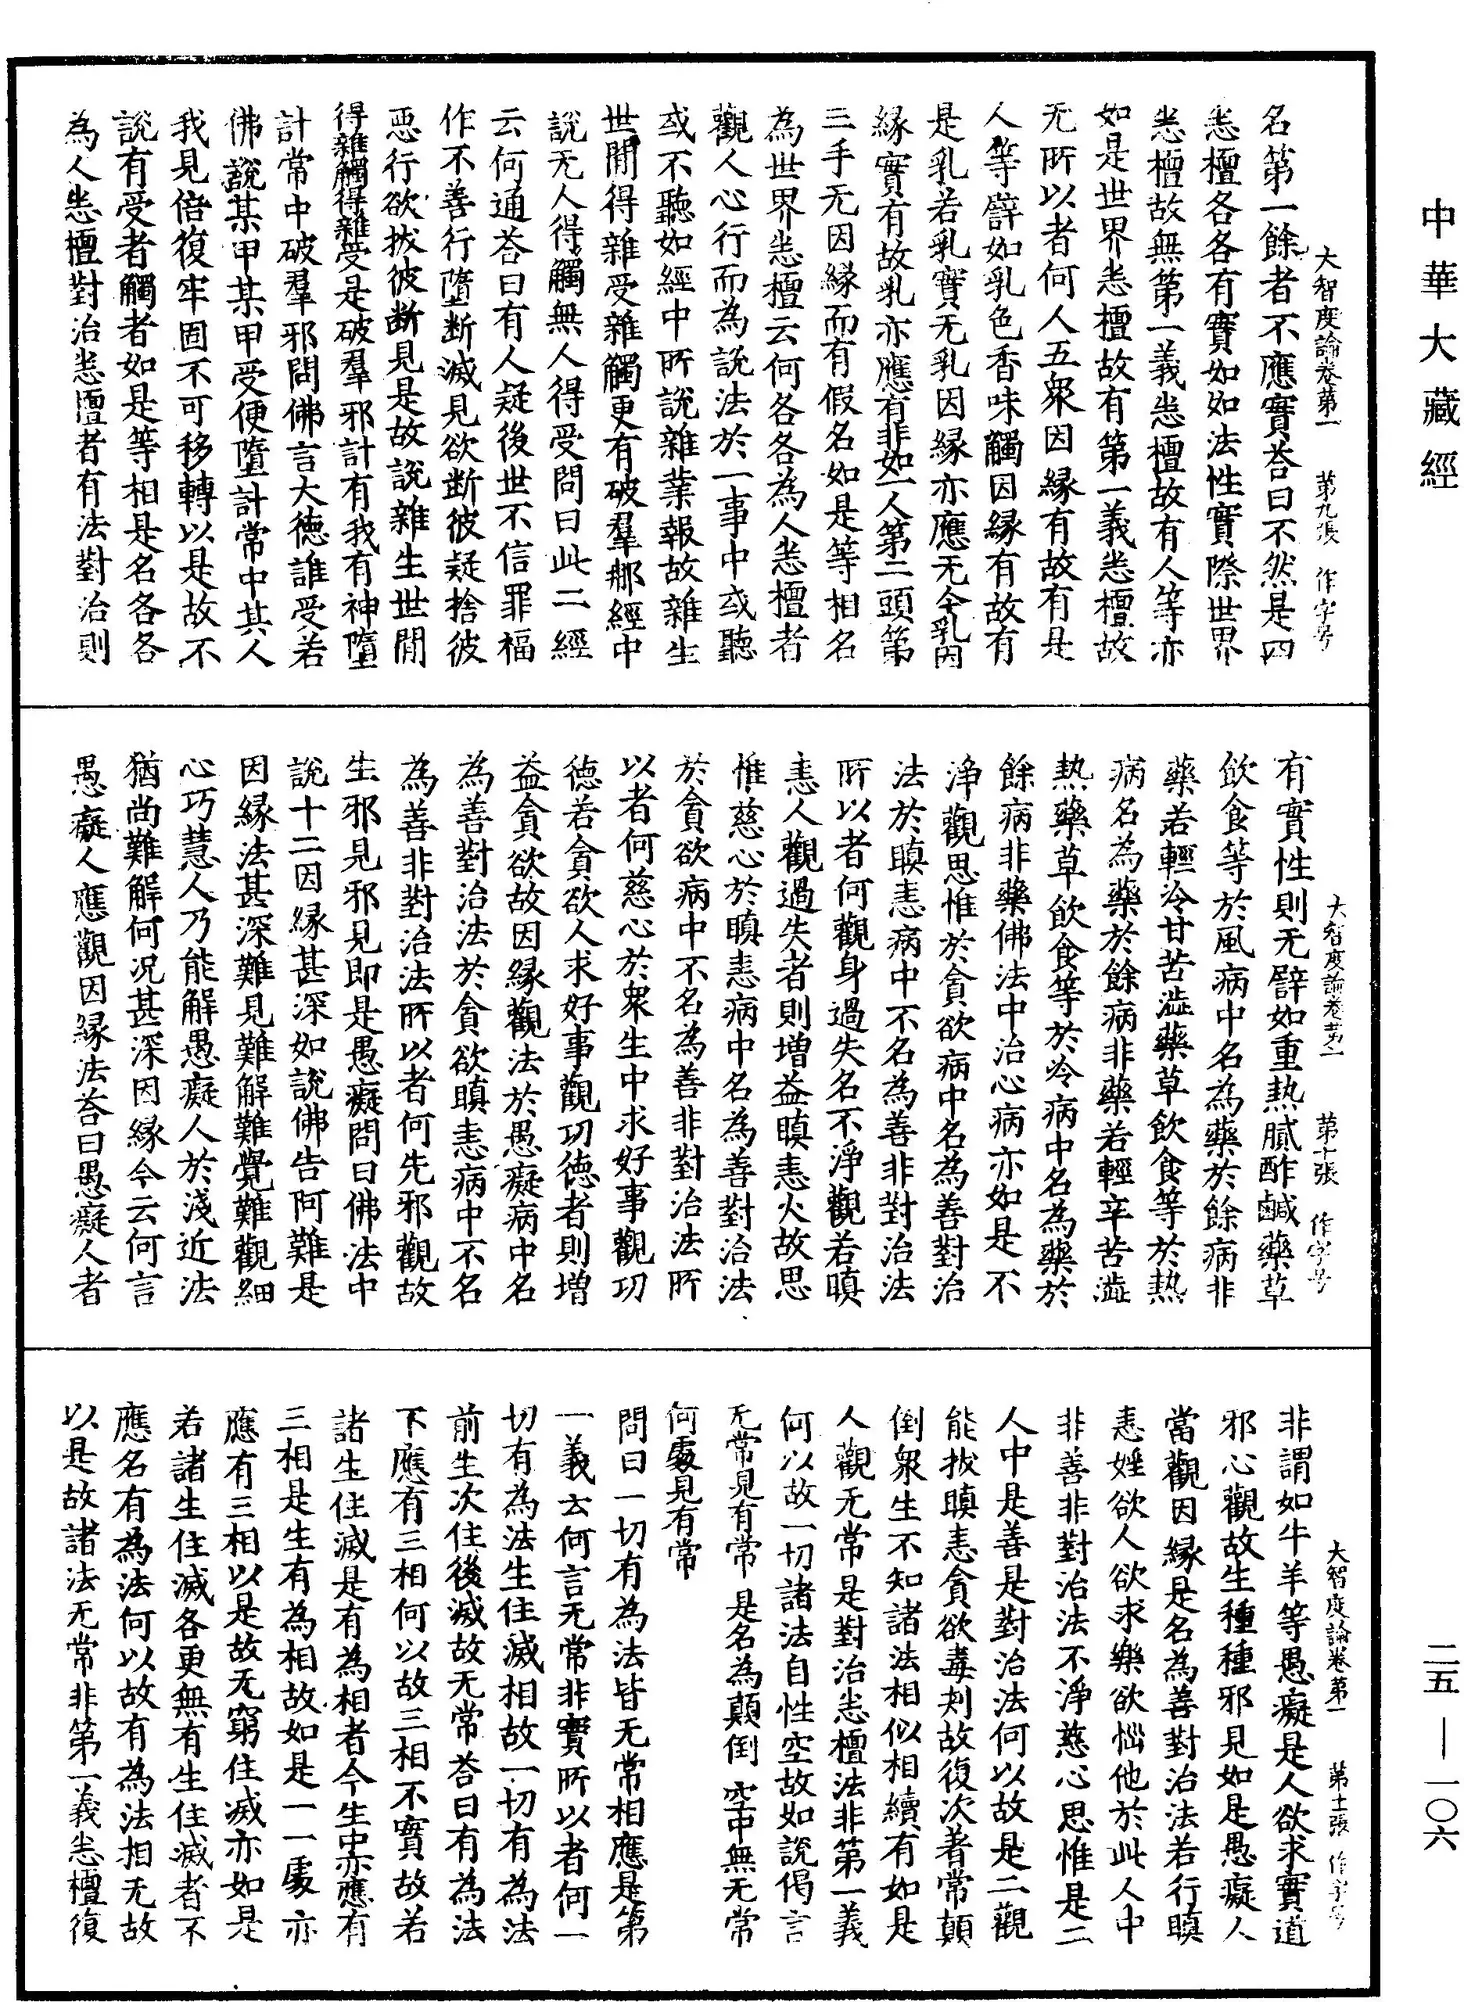 中華大藏經
大智度論卷第一　第九張　作字号
名第一餘者不應實荅曰不然是四
悉檀各各有實如如法性實際世界
悉檀故無第一義悉檀故有人等亦
如是世界悉檀故有第一義悉檀故
无所以者何人五衆因緣有故有是
人等譬如乳色香味觸因緣有故有
是乳若乳實无乳因緣亦應无今乳因
緣實有故乳亦應有非如一人第二頭第
三手无因緣而有假名如是等相名
為世界悉檀云何各各為人悉檀者
觀人心行而為說法於一事中或聽
或不聽如經中所說雜業報故雜生
世間得雜受雜觸更有破羣那經中
說无人得觸無人得受問曰此二經
云何通荅曰有人疑後世不信罪福
作不善行墮斷滅見欲斷彼疑捨彼
惡行欲拔彼斷見是故說雜生世間
得雜觸得雜受是破羣邪計有我有神墮
計常中破羣邪問佛言大德誰受若
佛說某甲某甲受便墮計常中其人
我見倍復牢固不可移轉以是故不
說有受者觸者如是等相是名各各
為人悉檀對治悉檀者有法對治則
大智度論卷第一　第十張　作字号
有實性則无譬如重熱膩酢鹹藥草
飲食等於風病中名為藥於餘病非
藥若輕冷甘苦澁藥草飲食等於熱
病名為藥於餘病非藥若輕辛苦澁
熱藥草飲食等於冷病中名為藥於
餘病非藥佛法中治心病亦如是不
淨觀思惟於貪欲病中名為善對治
法於瞋恚病中不名為善非對治法
所以者何觀身過失名不淨觀若瞋
恚人觀過失者則增益瞋恚火故思
惟慈心於瞋恚病中名為善對治法
於貪欲病中不名為善非對治法所
以者何慈心於衆生中求好事觀功
德若貪欲人求好事觀功德者則增
益貪欲故因緣觀法於愚癡病中名
為善對治法於貪欲瞋恚病中不名
為善非對治法所以者何先邪觀故
生邪見邪見即是愚癡問曰佛法中
說十二因緣甚深如說佛告阿難是
因緣法甚深難見難解難覺難觀細
心巧慧人乃能解愚癡人於淺近法
猶尚難解何況甚深因緣今云何言
愚癡人應觀因緣法荅曰愚癡人者
大智度論卷第一　第十一張　作字号
非謂如牛羊等愚癡是人欲求實道
邪心觀故生種種邪見如是愚癡人
當觀因緣是名為善對治法若行瞋
恚婬欲人欲求樂欲惱他於此人中
非善非對治法不淨慈心思惟是二
人中是善是對治法何以故是二觀
能拔瞋恚貪欲毒刾故復次著常顛
倒衆生不知諸法相似相續有如是
人觀无常是對治悉檀法非第一義
何以故一切諸法自性空故如說偈言
无常見有常　是名為顛倒　空中無无常
何處見有常
問曰一切有為法皆无常相應是第
一義云何言无常非實所以者何一
切有為法生住滅相故一切有為法
前生次住後滅故无常荅曰有為法
不應有三相何以故三相不實故若
諸生住滅是有為相者今生中亦應有
三相是生有為相故如是一一處亦
應有三相以是故无窮住滅亦如是
若諸生住滅各更無有生住滅者不
應名有為法何以故有為法相无故
以是故諸法无常非第一義悉檀復
二五—一〇六